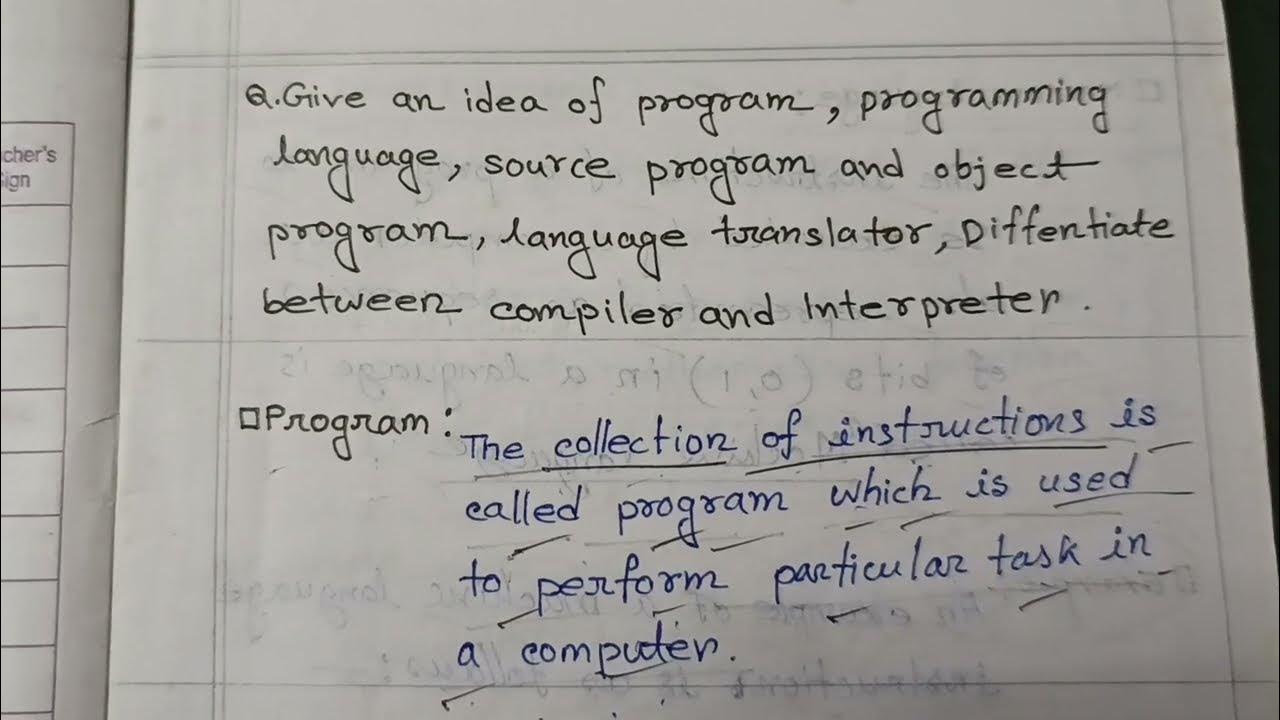 cher's
ign
Q.Give an idea of program, programming
language, source program and object
program, language translator, Diffentiate
between compiler and Interpreter.
of bits (0,1) in a language is
□Program: The collection of instructions is
called program which is used
to perform particular task in
a computer.